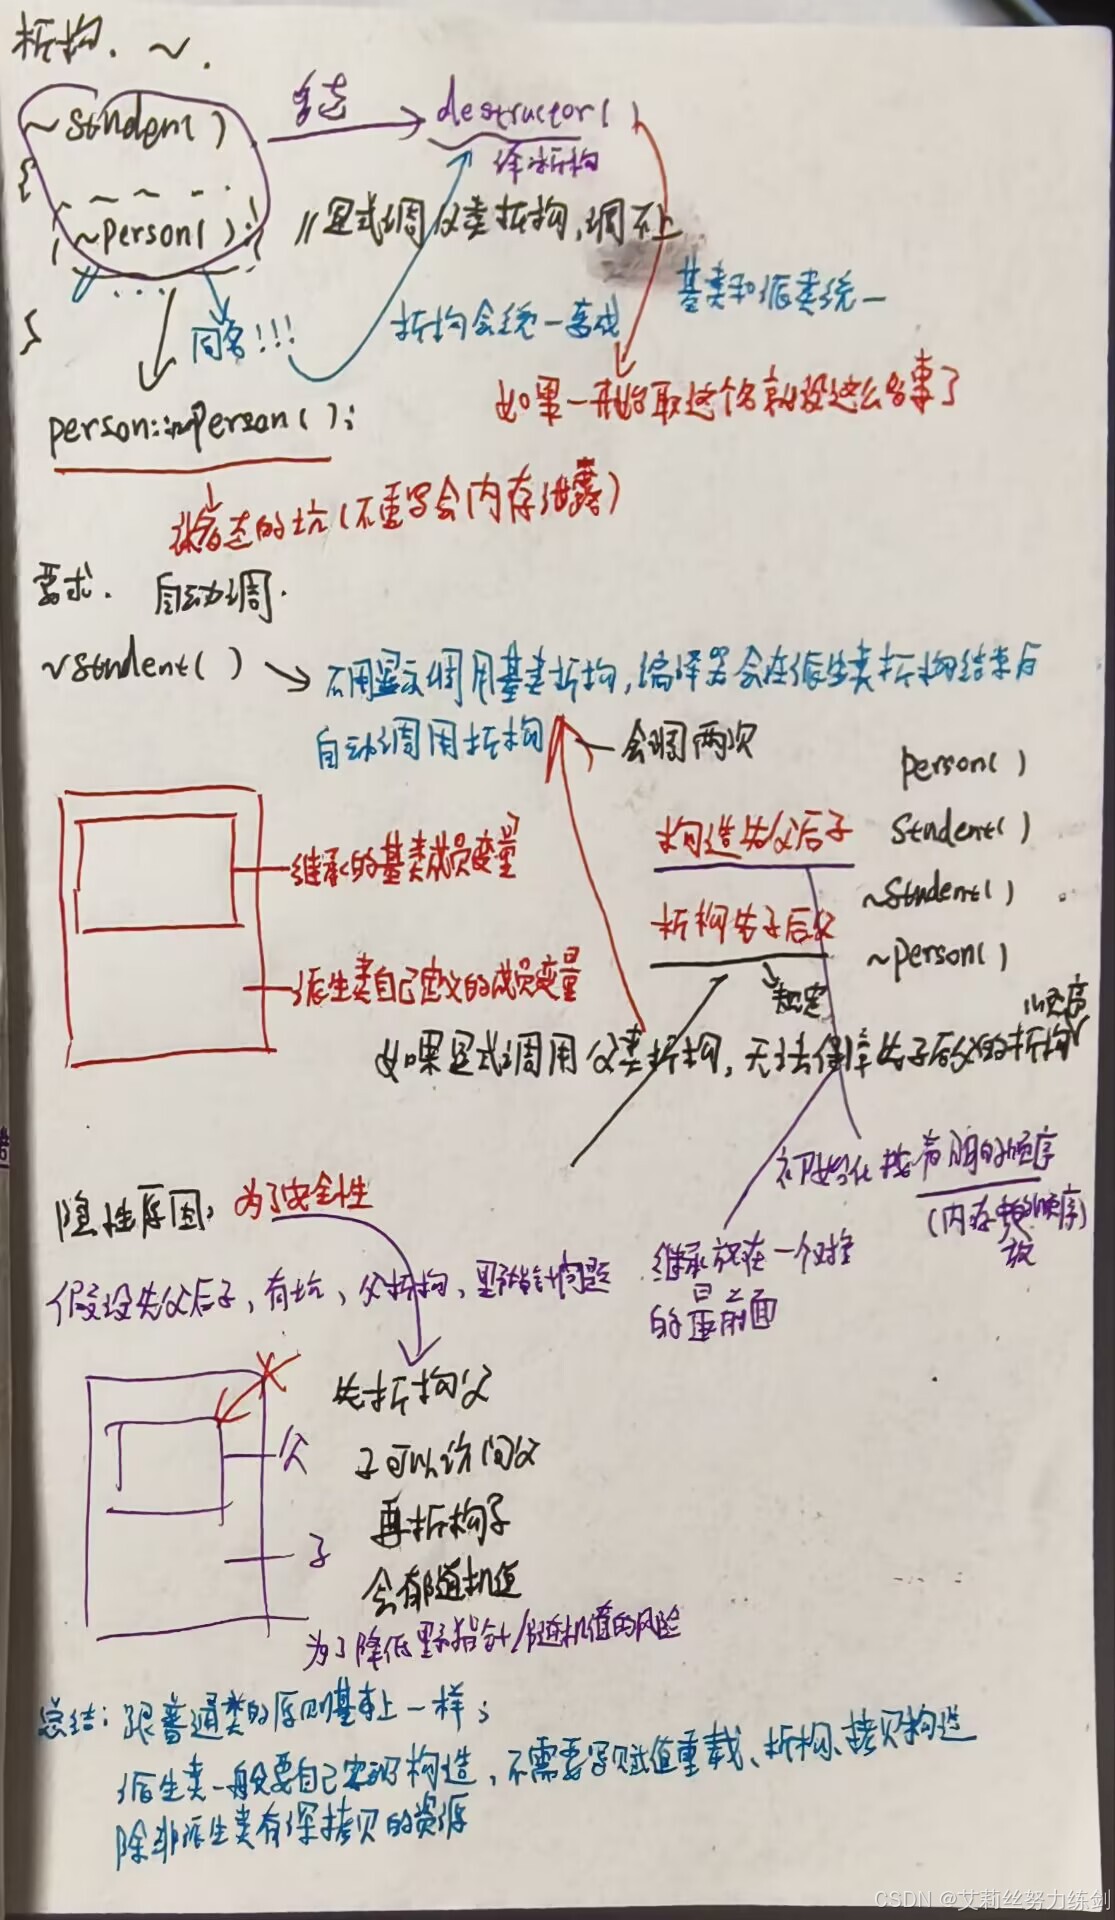 析构. ~.
~Student()
{
~Person();
...
}
多态
destructor()
//显式调父类析构,调不上
同名!!!
析构会统一变成
基类和派类统一
如果一开始取这个名就没这么多事了
person::~Person();
多态的坑(不重写会内存泄露)
要求. 自动调.
~Student()
不用显示调用基类析构,编译器会在派生类析构结束后
自动调用析构
会调两次
person()
Student()
~Student()
~person()
构造先父后子
析构先子后父
规定
继承的基类成员变量
派生类自己定义的成员变量
如果显式调用父类析构,无法保障先子后父的析构顺序
初始化按声明的顺序
(内存存放的顺序)
继承放在一个对象
的最前面
隐性原因: 为了安全性
假设先父后子,有坑,父析构,野指针问题
先析构父
父
子可以访问父
再析构子
子
会有随机值
为了降低野指针/随机值的风险
总结: 跟普通类的原则基本上一样;
派生类一般要自己实现构造,不需要写赋值重载、析构、拷贝构造
除非派生类有深拷贝的资源
CSDN @艾莉丝努力练剑